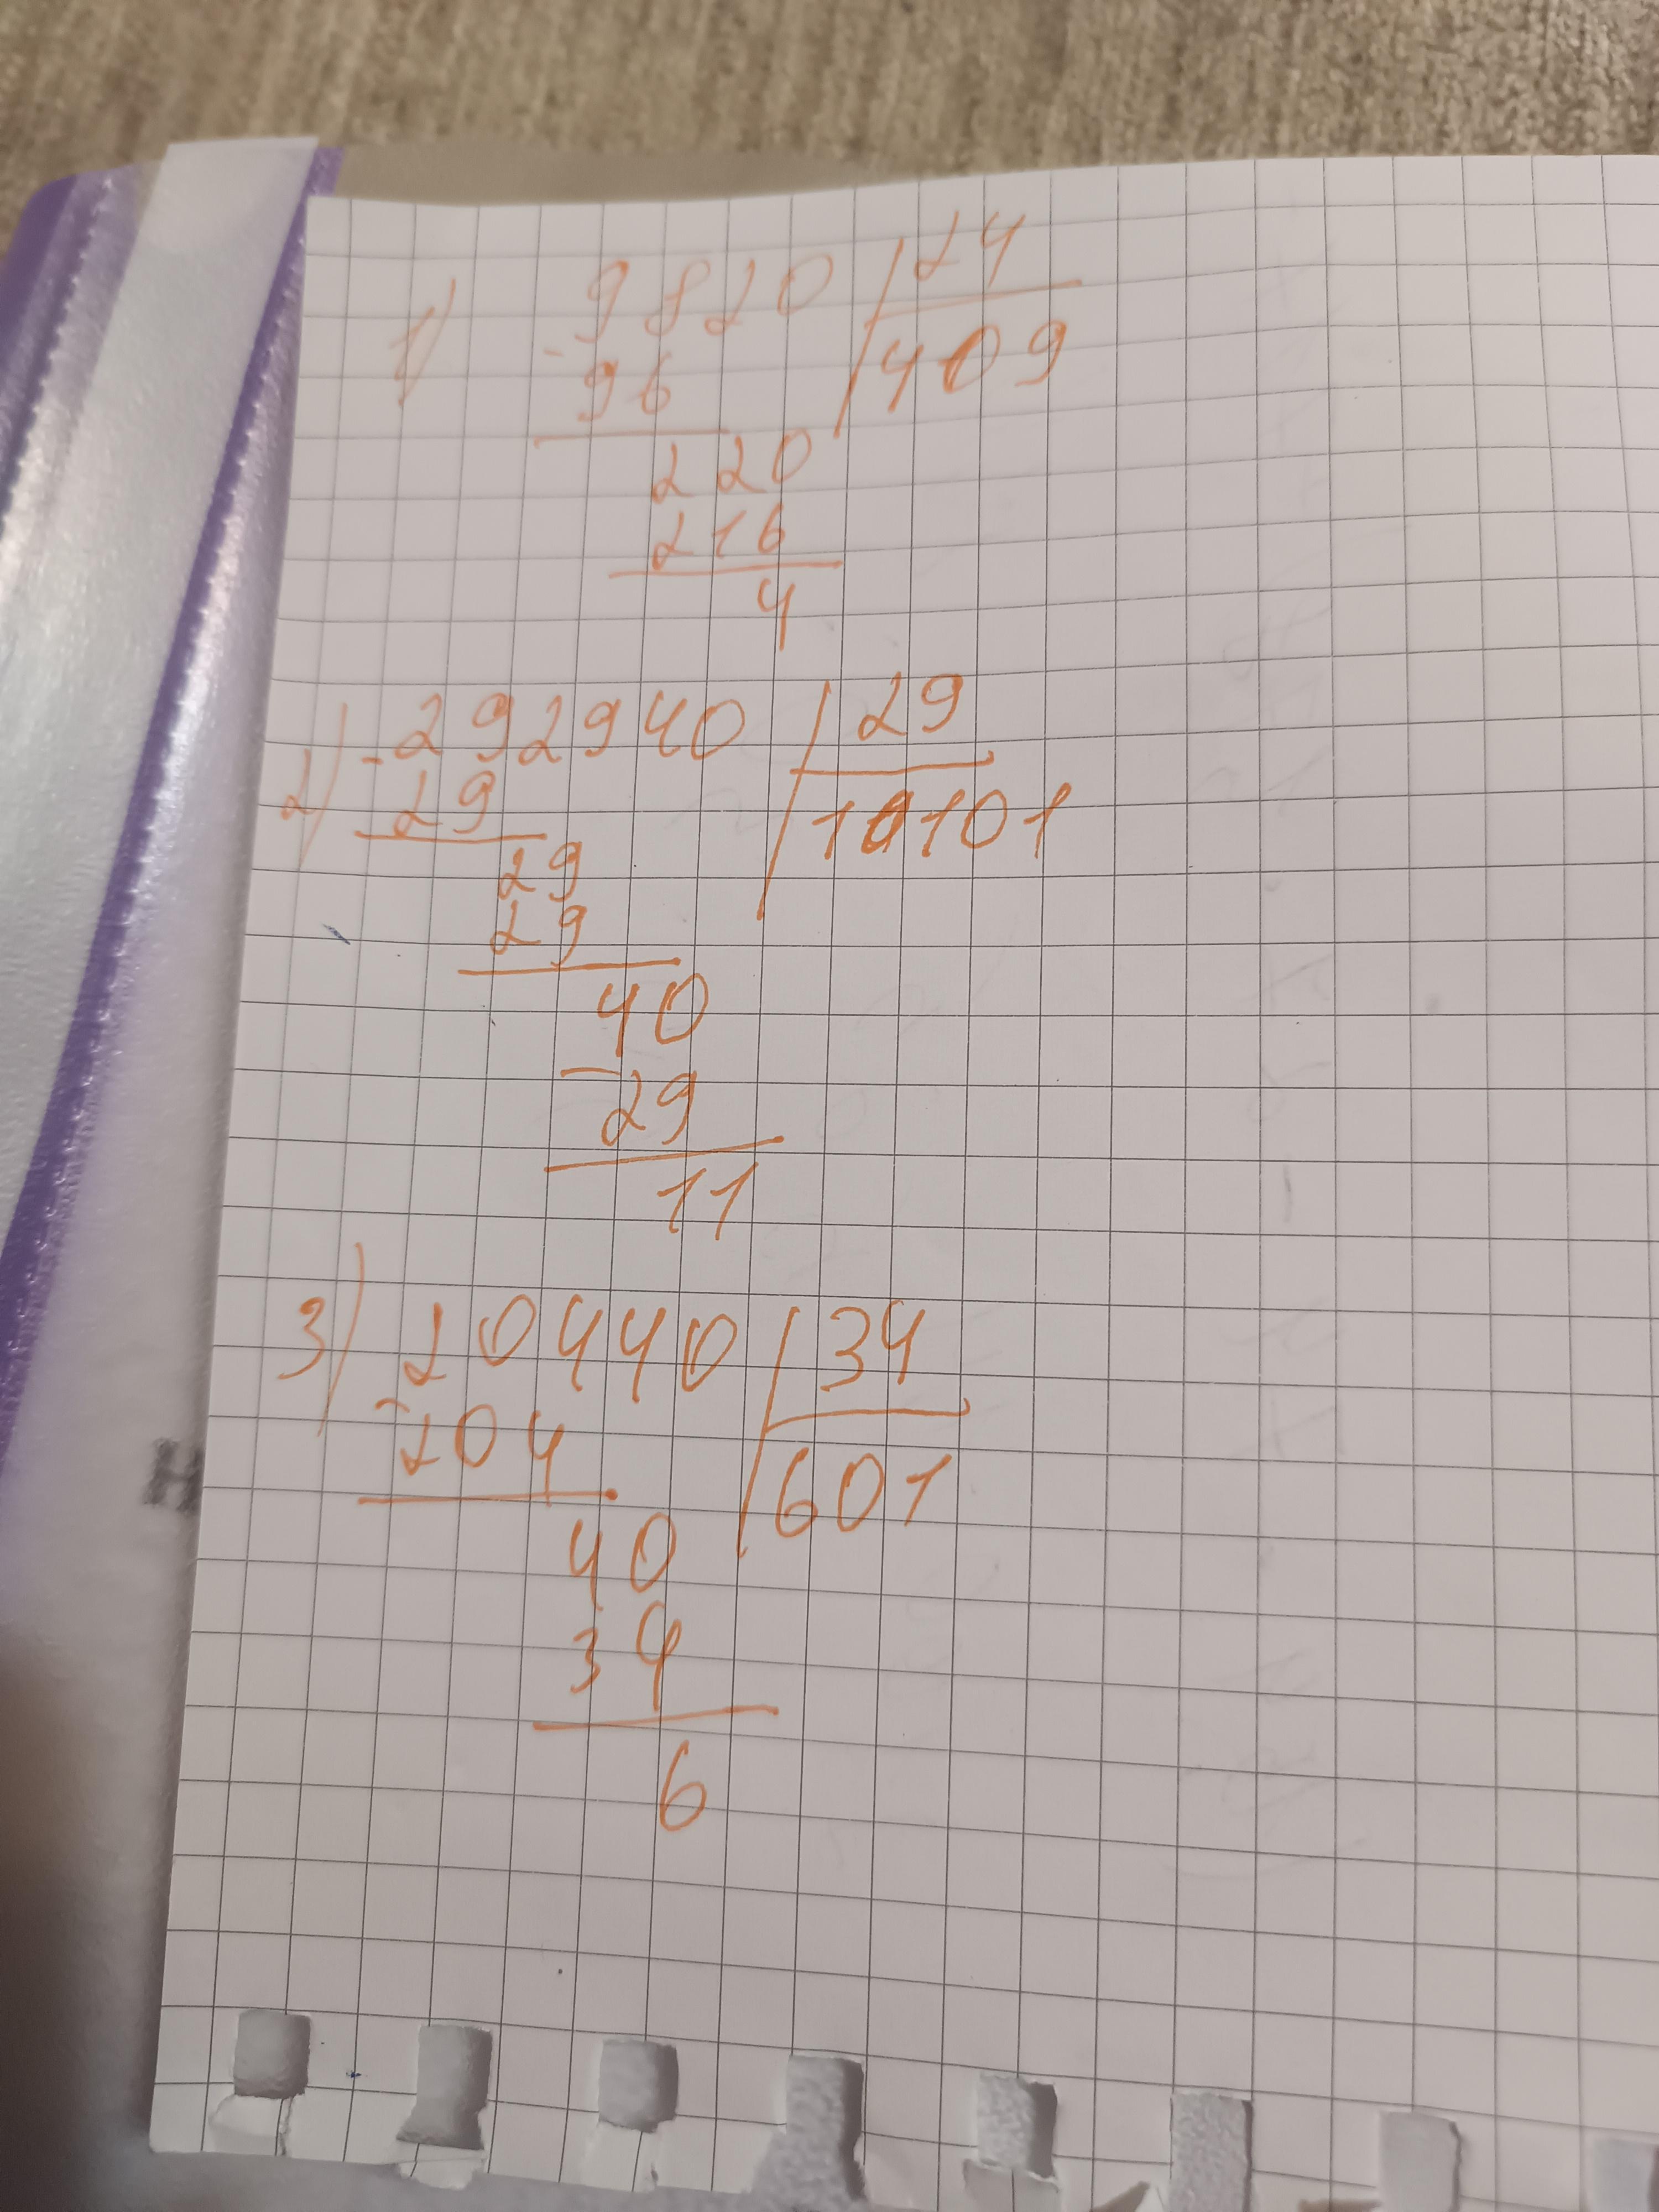 1) 9820 | 24
- 96 | 409
220
216
4
2) - 292940 | 29
29 | 10101
29
29
40
- 29
11
3) 20440 | 34
- 204 | 601
40
34
6
H